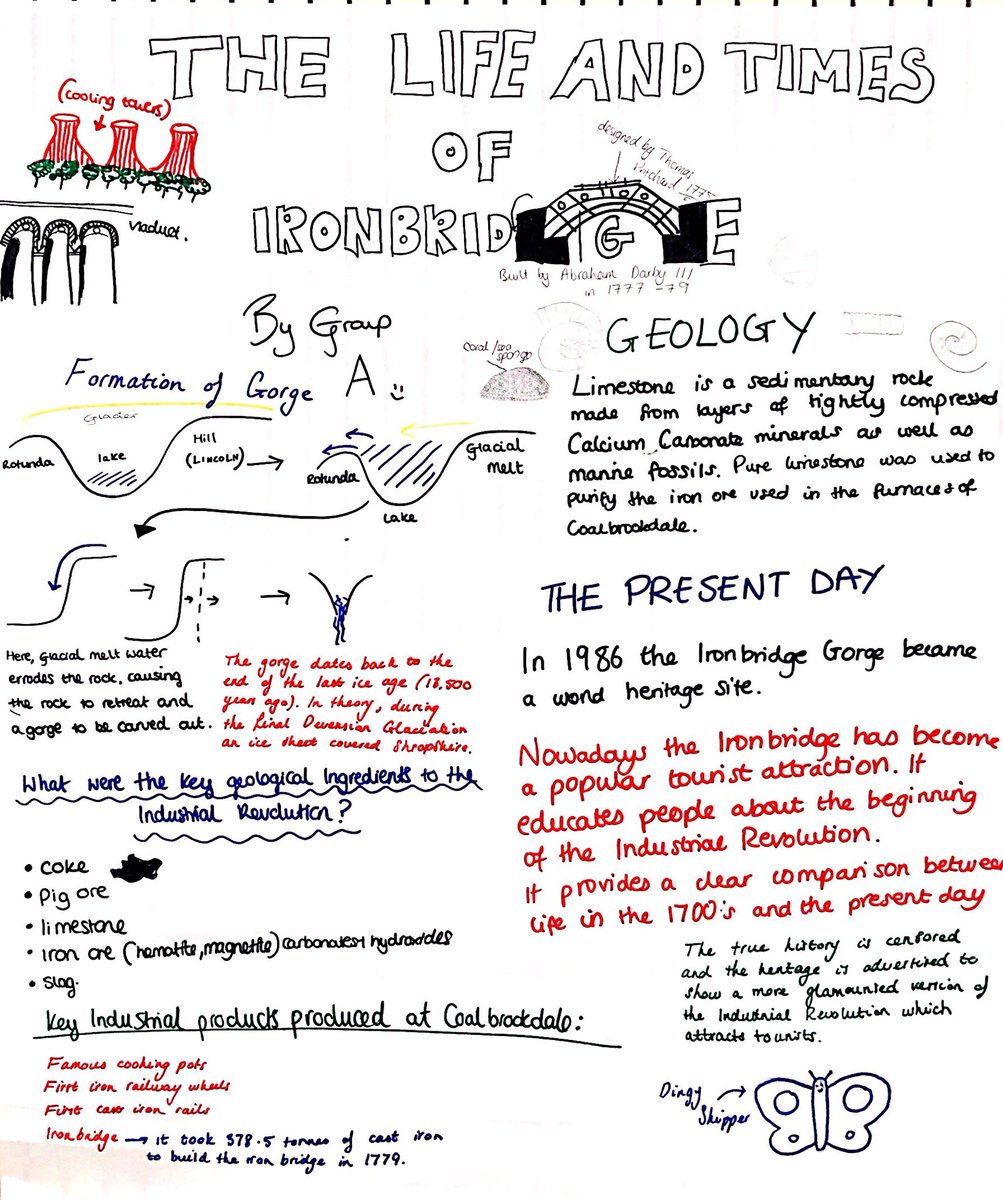 THE LIFE AND TIMES
OF
IRONBRIDGE
(cooling towers)
viaduct.
designed by Thomas
Pritchard 1775
Built by Abraham Darby III
in 1777-79
By Group
A
Formation of Gorge
Glacier
Rotunda
lake
Hill
(LINCOLN)
Rotunda
Glacial
melt
Lake
Here, Glacial melt water
errodes the rock, causing
the rock to retreat and
a gorge to be carved out.
The gorge dates back to the
end of the last ice age (18,500
years ago). In theory, during
the final Devensian Glaciation
an ice sheet covered Shropshire.
What were the key geological Ingredients to the
Industrial Revolution?
• coke
• Pig ore
• limestone
• iron ore (hematite, magnetite) carbonates + hydroxides
• Slag.
Key Industrial products produced at Coalbrookdale:
Famous cooking pots
First iron railway wheels
First cast iron rails
Ironbridge → it took 378.5 tonnes of cast iron
to build the iron bridge in 1779.
GEOLOGY
coral/sea
sponge
Limestone is a sedimentary rock
made from layers of tightly compressed
Calcium Carbonate minerals as well as
marine fossils. Pure limestone was used to
purify the iron ore used in the furnaces of
Coalbrookdale.
THE PRESENT DAY
In 1986 the Ironbridge Gorge became
a world heritage site.
Nowadays the Ironbridge has become
a popular tourist attraction. It
educates people about the beginning
of the Industrial Revolution.
It provides a clear comparison between
life in the 1700's and the present day
The true history is censored
and the heritage is advertised to
show a more glamounted version of
the Industrial Revolution which
attracts tourists.
Dingy
Skipper